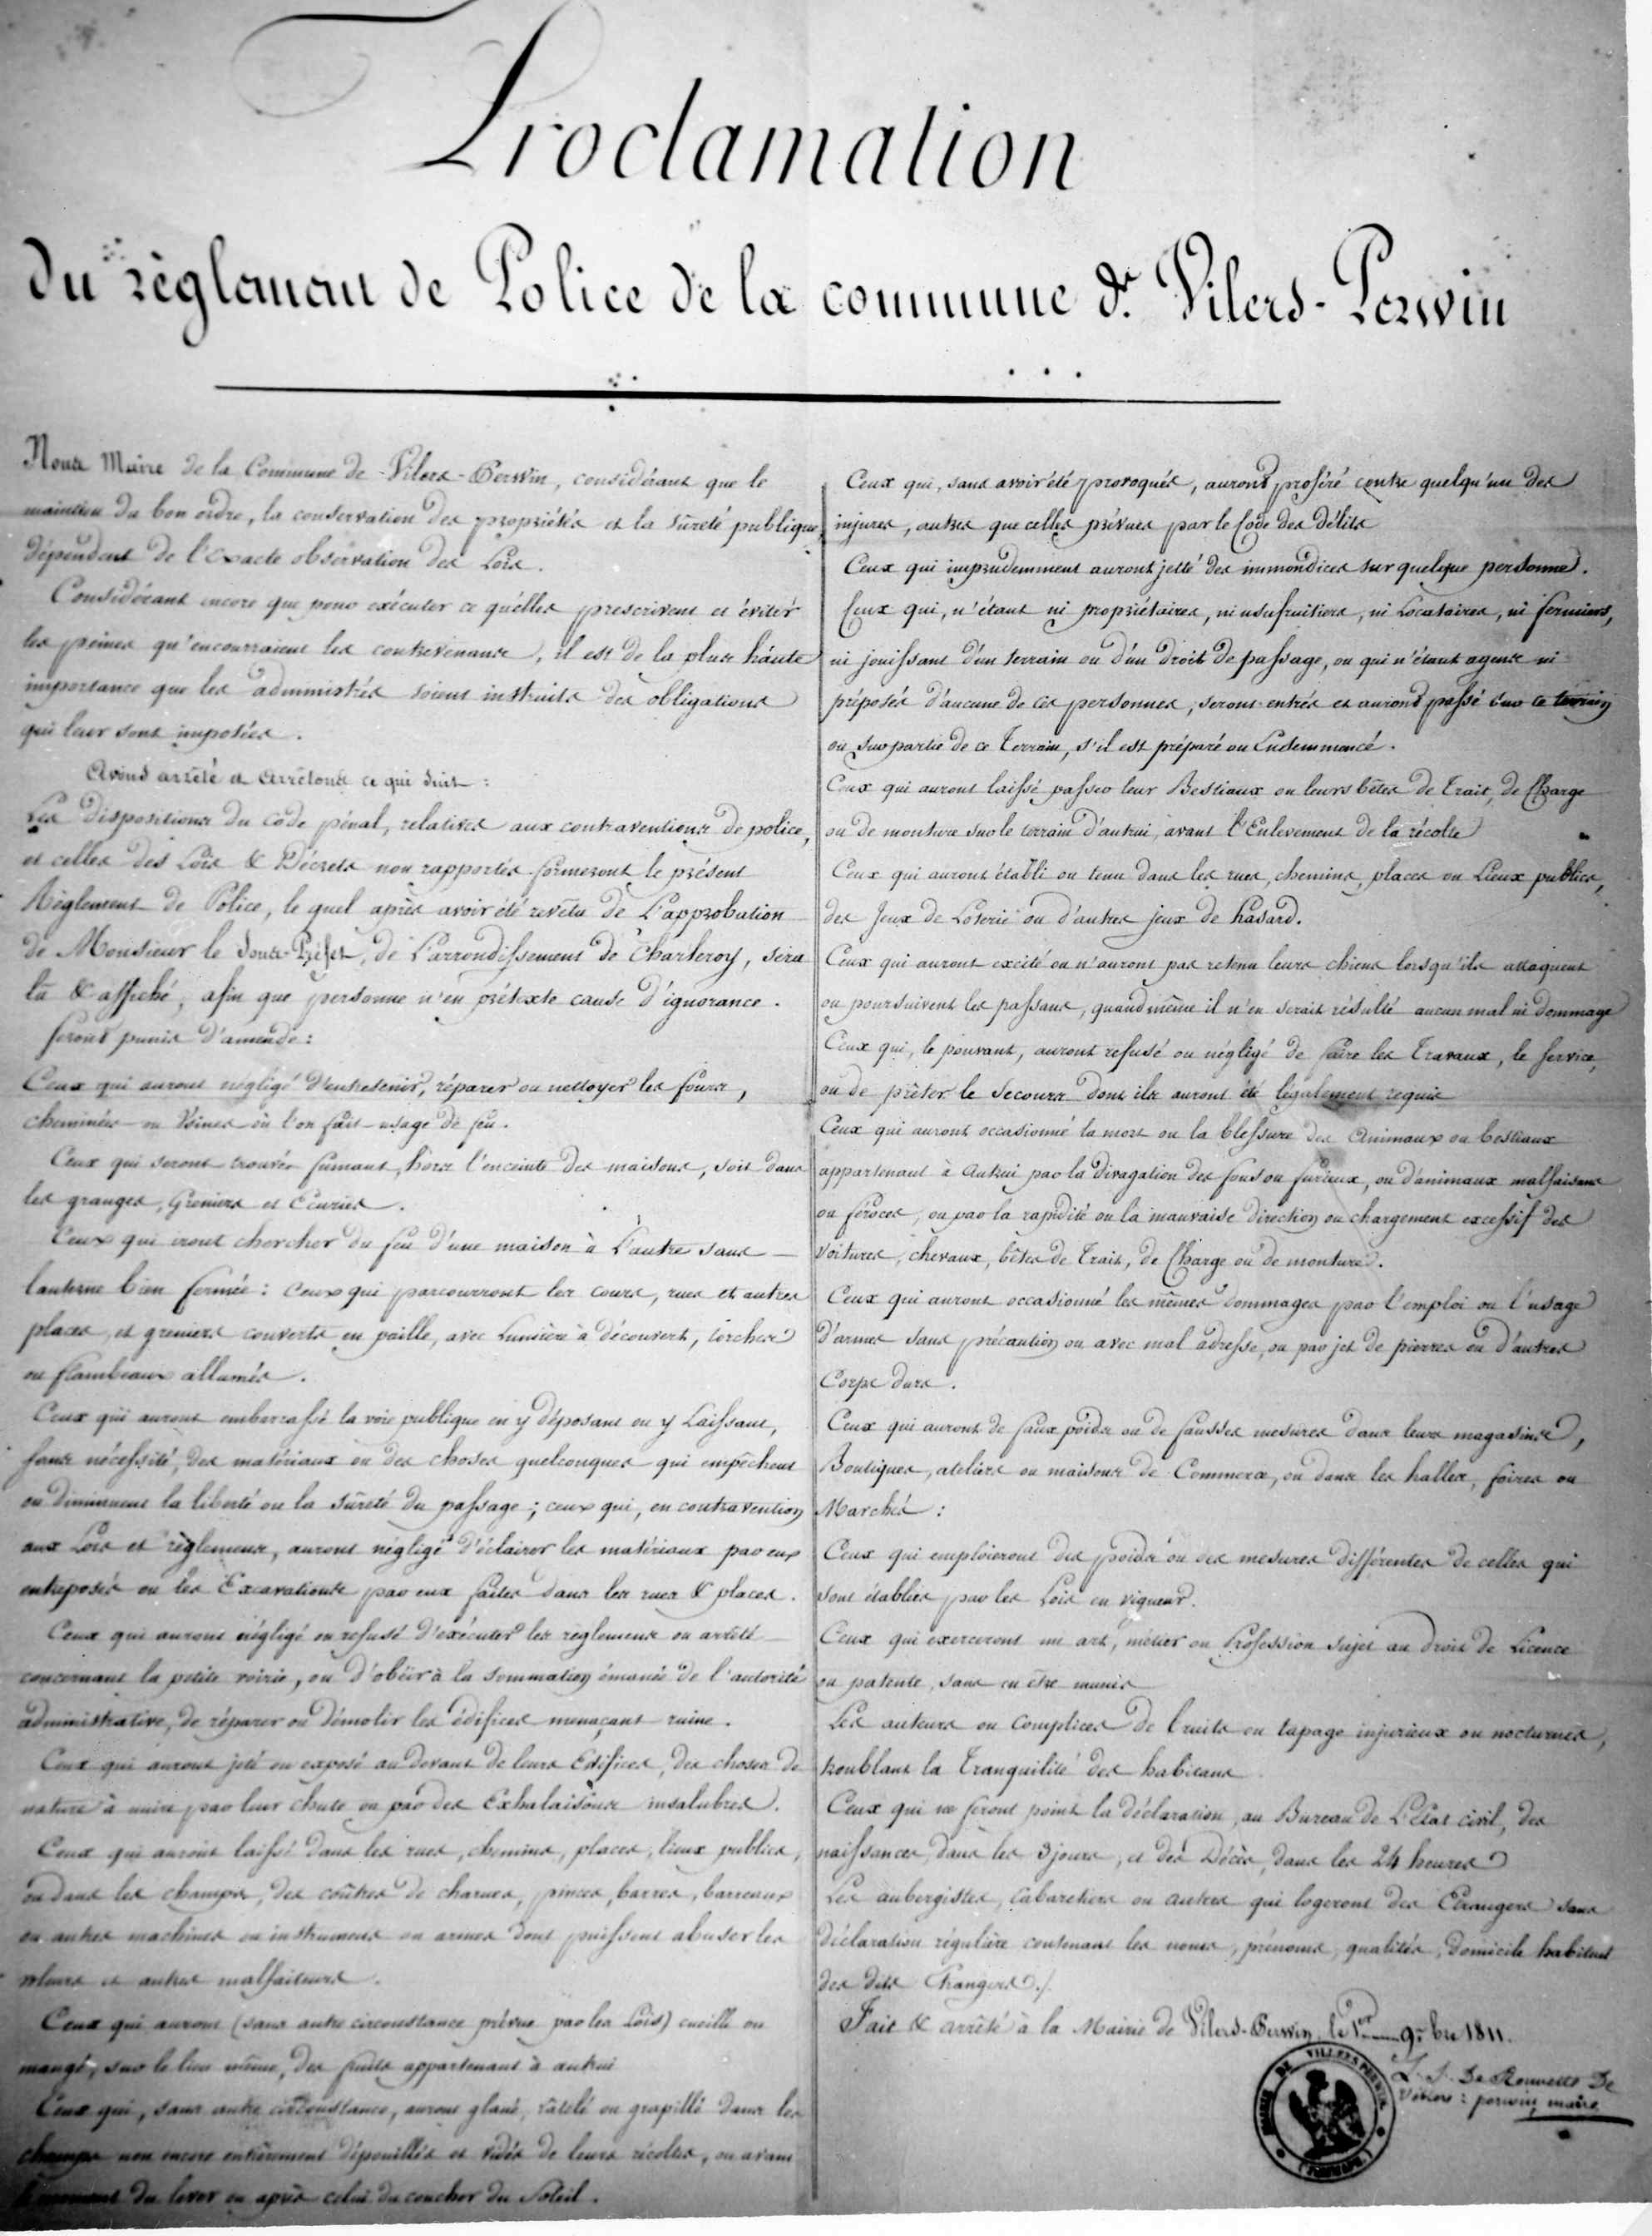 Proclamation
du règlement de Police de la commune de Vilers-Perwin
Nous Maire de la Commune de Vilers-Perwin, considérant que le
maintien du bon ordre, la conservation des propriétés et la sûreté publique,
dépendent de l'exacte observation des Lois.
Considérant encore que pour exécuter ce qu'elles prescrivent et éviter
les peines qu'encourraient les contrevenans, il est de la plus háute
importance que les administrés soient instruits des obligations
qui leur sont imposées.
Avons arrêté et Arrêtons ce qui suit :
Les Dispositions du code pénal, relatives aux contraventions de police,
et celles des Lois & Décrets non rapportés formeront le présent
Règlement de Police, le quel après avoir été revêtu de L'approbation
de Monsieur le Sous-Préfet, de L'arrondissement de Charleroy, sera
lû & affiché, afin que personne n'en prétexte cause d'ignorance.
Seront punis d'amende :
Ceux qui auront négligé d'entretenir, réparer ou nettoyer les fours,
cheminées ou Usines où l'on fait usage de feu.
Ceux qui seront trouvés fumant, hors l'enceinte des maisons, soit dans
les granges, Greniers et Ecuries.
Ceux qui iront chercher du feu d'une maison à L'autre sans
lanterne bien fermée : ceux qui parcourront les cours, rues et autres
places, et greniers couverts en paille, avec Lumière à découvert, torches
ou flambeaux allumés.
Ceux qui auront embarrassé la voie publique en y déposant ou y Laissant,
sans nécessité, des matériaux ou des choses quelconques qui empêchent
ou diminuent la liberté ou la sûreté du passage ; ceux qui, en contravention
aux Lois et règlemens, auront négligé d'éclairer les matériaux par eux
entreposés ou les Excavations par eux faites dans les rues & places.
Ceux qui auront négligé ou refusé d'exécuter les règlemens ou arrêté
concernant la petite voirie, ou d'obéir à la sommation émanée de l'autorité
administrative, de réparer ou démolir les édifices menaçant ruine.
Ceux qui auront jeté ou exposé au devant de leurs Edifices, des choses de
nature à nuire par leur chute ou par des Exhalaisons insalubres.
Ceux qui auront laissé dans les rues, chemins, places, lieux publics,
ou dans les champs, des coûtres de charues, pinces, barres, barreaux
ou autres machines ou instrumens ou armes dont puissent abuser les
voleurs et autres malfaiteurs.
Ceux qui auront (sans autre circonstance prévue par les Lois) cueilli ou
mangé, sur le lieu même, des fruits appartenant à autrui
Ceux qui, sans autre circonstance, auront glané, râtelé ou grapillé dans les
champs non encore entièrement dépouillés et vidés de leurs récoltes, ou avant
le moment du lever ou après celui du coucher du Soleil.
Ceux qui, sans avoir été provoqués, auront proféré contre quelqu'un des
injures, autres que celles prévues par le Code des Délits
Ceux qui imprudemment auront jetté des immondices sur quelque personne.
Ceux qui, n'étant ni propriétaires, ni usufruitiers, ni Locataires, ni fermiers,
ni jouissant d'un terrain ou d'un droit de passage, ou qui n'étant agens ni
préposés d'aucune de ces personnes, seront entrés et auront passé sur ce terrain
ou sur partie de ce Terrain, s'il est préparé ou Endemmencé.
Ceux qui auront laissé passer leur Bestiaux ou leurs bêtes de Trait, de Charge
ou de monture sur le terrain d'autrui, avant l'Enlevement de la récolte
Ceux qui auront établi ou tenu dans les rues, chemins, places ou Lieux publics,
des Jeux de Loterie ou d'autres jeux de hasard.
Ceux qui auront excité ou n'auront pas retenu leurs chiens lorsqu'ils attaquent
ou poursuivent les passans, quand même il n'en serait résulté aucun mal ni dommage
Ceux qui, le pouvant, auront refusé ou négligé de faire les Travaux, le service,
ou de prêter le Secours dont ils auront été légalement requis
Ceux qui auront occasionné la mort ou la blessure des Animaux ou bestiaux
appartenant à Autrui par la Divagation des fous ou furieux, ou d'animaux malfaisans
ou féroces, ou par la rapidité ou la mauvaise direction ou chargement excessif des
voitures, chevaux, bêtes de Trait, de Charge ou de monture.
Ceux qui auront occasionné les mêmes dommages par l'emploi ou l'usage
d'armes sans précaution ou avec mal adresse, ou par jet de pierres ou d'autres
Corps durs.
Ceux qui auront de faux poids ou de fausses mesures dans leurs magasins,
Boutiques, ateliers ou maisons de Commerce, ou dans les halles, foires ou
Marchés :
Ceux qui emploieront des poids ou des mesures différentes de celles qui
sont établies par les Lois en vigueur.
Ceux qui exerceront un art, métier ou Profession sujet au droit de Licence
ou patente, sans en être munis
Les auteurs ou Complices de bruits ou tapage injurieux ou nocturnes,
troublant la Tranquilité des habitans
Ceux qui ne feront point la déclaration, au Bureau de L'Etat civil, des
naissances, dans les 3 jours, et des Décès, dans les 24 heures
Les aubergistes, Cabaretiers ou autres qui logeront des Etrangers sans
déclaration régulière contenant les noms, prénoms, qualités, domicile habituel
des dits Etrangers./.
Fait & arrêté à la Mairie de Vilers-Perwin, le 1er 9bre 1811.
De Rouvette De
Vilers : perwin, maire
MAIRIE DE VILLERS PERWIN